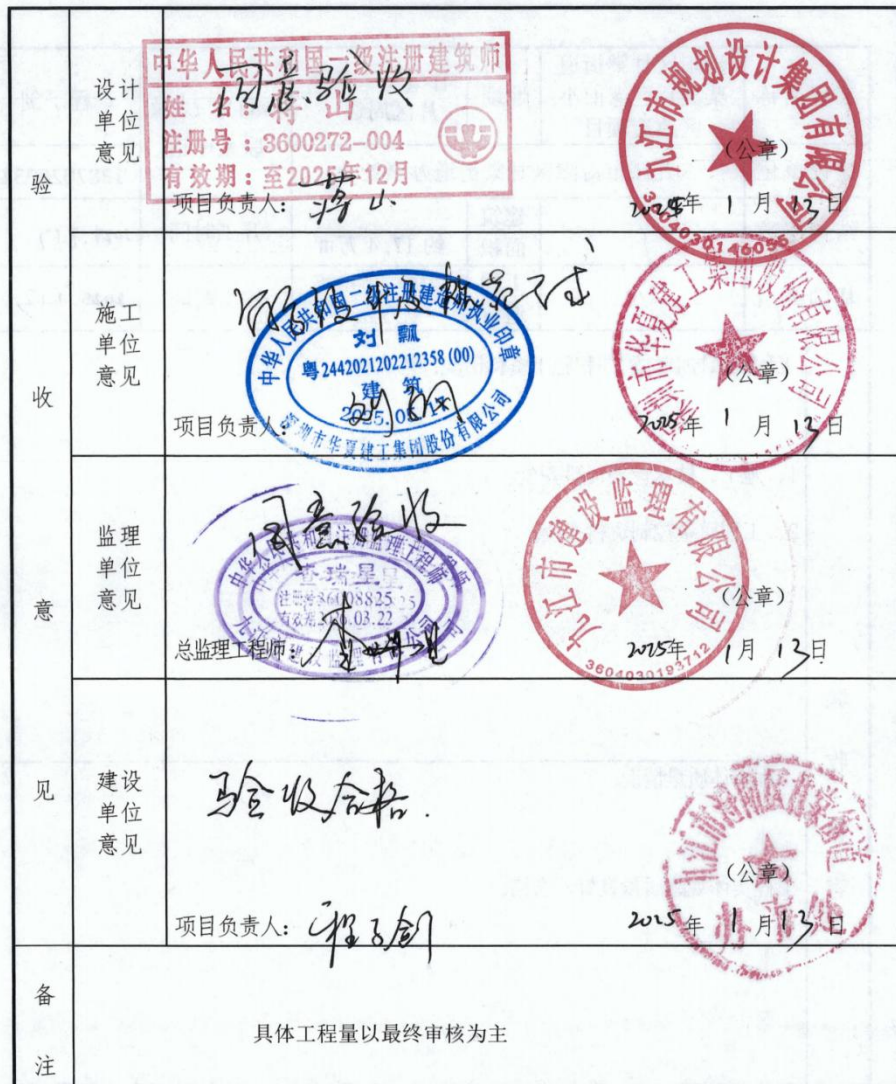 验收意见
设计单位意见
同意验收
中华人民共和国一级注册建筑师
姓 名：蒋山
注册号：3600272-004
有效期：至2025年12月
项目负责人：蒋山
九江市规划设计集团有限公司
（公章）
3604030146055
2025年 1 月 13 日
施工单位意见
中华人民共和国二级注册建造师执业印章
刘 飘
粤2442021202212358(00)
建 筑
深圳市华夏建工集团股份有限公司
项目负责人：
深圳市华夏建工集团股份有限公司
（公章）
2025 年 1 月 13 日
监理单位意见
同意验收
中华人民共和国注册监理工程师
查瑞星
注册号36008825
有效期2026.03.22
九江市建设监理有限公司
总监理工程师：
九江市建设监理有限公司
（公章）
3604030193712
2025年 1月 13日
建设单位意见
验收合格.
项目负责人：
（公章）
办事处
2025 年 1 月 13 日
备注
具体工程量以最终审核为主